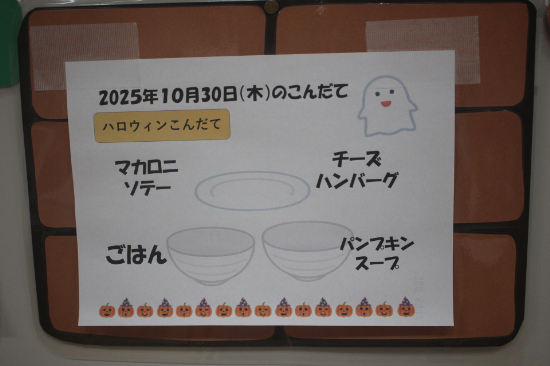 2025年10月30日(木)のこんだて
ハロウィンこんだて
マカロニ
ソテー
チーズ
ハンバーグ
ごはん
パンプキン
スープ